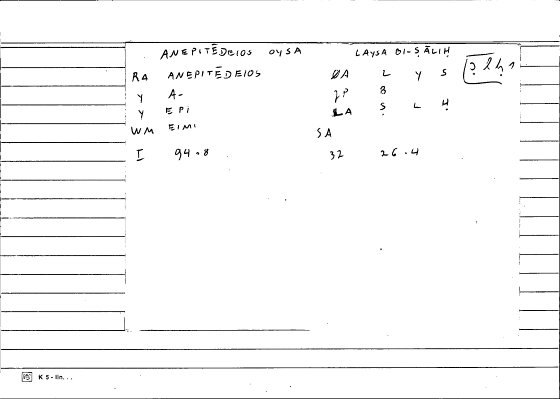 ANEPITĒDEIOS OYSA LAYSA BI-ṢĀLIḤ
RA ANEPITĒDEIOS ØA L Y S
Y A- JP B
Y EPI LA Ṣ L Ḥ
WM EIMI SA
I 94.8 32 26.4
K 5 - lin. . .